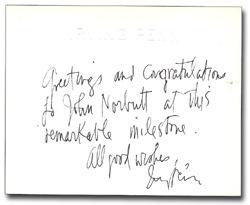 IRVING PENN
Greetings and Congratulations
to John Norbutt at this
remarkable milestone.
All good wishes